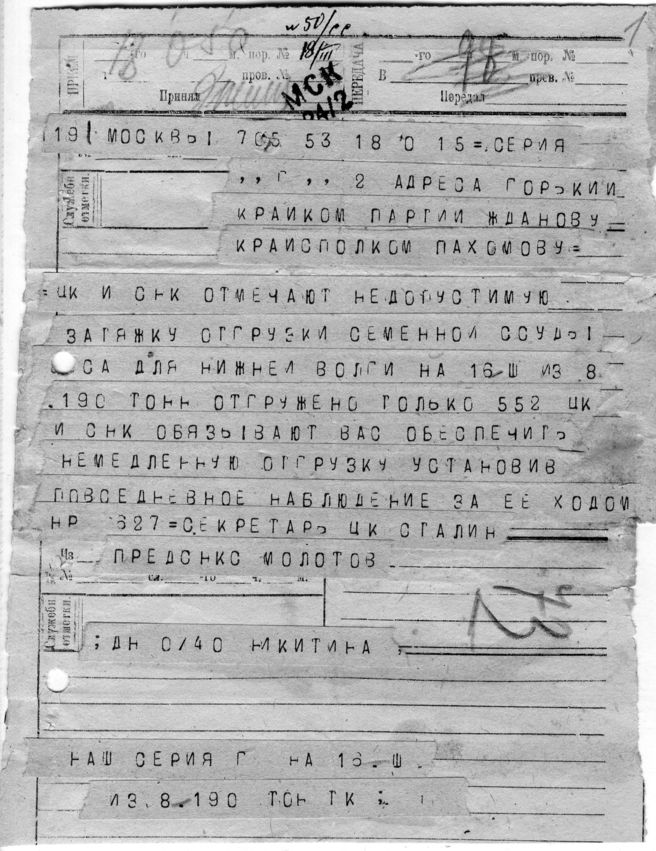 № 50/сс
1
18/III
го ч. м. пор. №
пров. №
ПЕРЕДАЧА
МСК
-го м пор. №
В прев. №
Принял
Передал
19 МОСКВЫ 705 53 18 0 15=.СЕРИЯ
Служебн. отметки.
,,Г,, 2 АДРЕСА ГОРЬКИИ
КРАИКОМ ПАРТИИ ЖДАНОВУ
КРАИСПОЛКОМ ПАХОМОВУ=
=ЦК И СНК ОТМЕЧАЮТ НЕДОПУСТИМУЮ
ЗАТЯЖКУ ОТГРУЗКИ СЕМЕННОЙ ССУДЫ
ДЛЯ НИЖНЕЙ ВОЛГИ НА 16-Ш ИЗ 8.
.190 ТОНН ОТГРУЖЕНО ТОЛЬКО 552 ЦК
И СНК ОБЯЗЫВАЮТ ВАС ОБЕСПЕЧИТЬ
НЕМЕДЛЕННУЮ ОТГРУЗКУ УСТАНОВИВ
ПОВСЕДНЕВНОЕ НАБЛЮДЕНИЕ ЗА ЕЕ ХОДОМ
НР 627=СЕКРЕТАРЬ ЦК СТАЛИН
ПРЕДСНКС МОЛОТОВ
Из
№ -го ч. м.
Служебн. отметки.
;ДН 0/40 НИКИТИНА ;
НАШ СЕРИЯ Г НА 16.Ш.
ИЗ.8.190 ТОН ТК ;